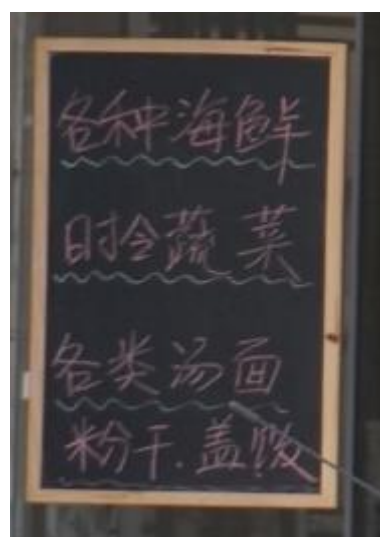 各种海鲜
时令蔬菜
各类汤面
粉干.盖饭